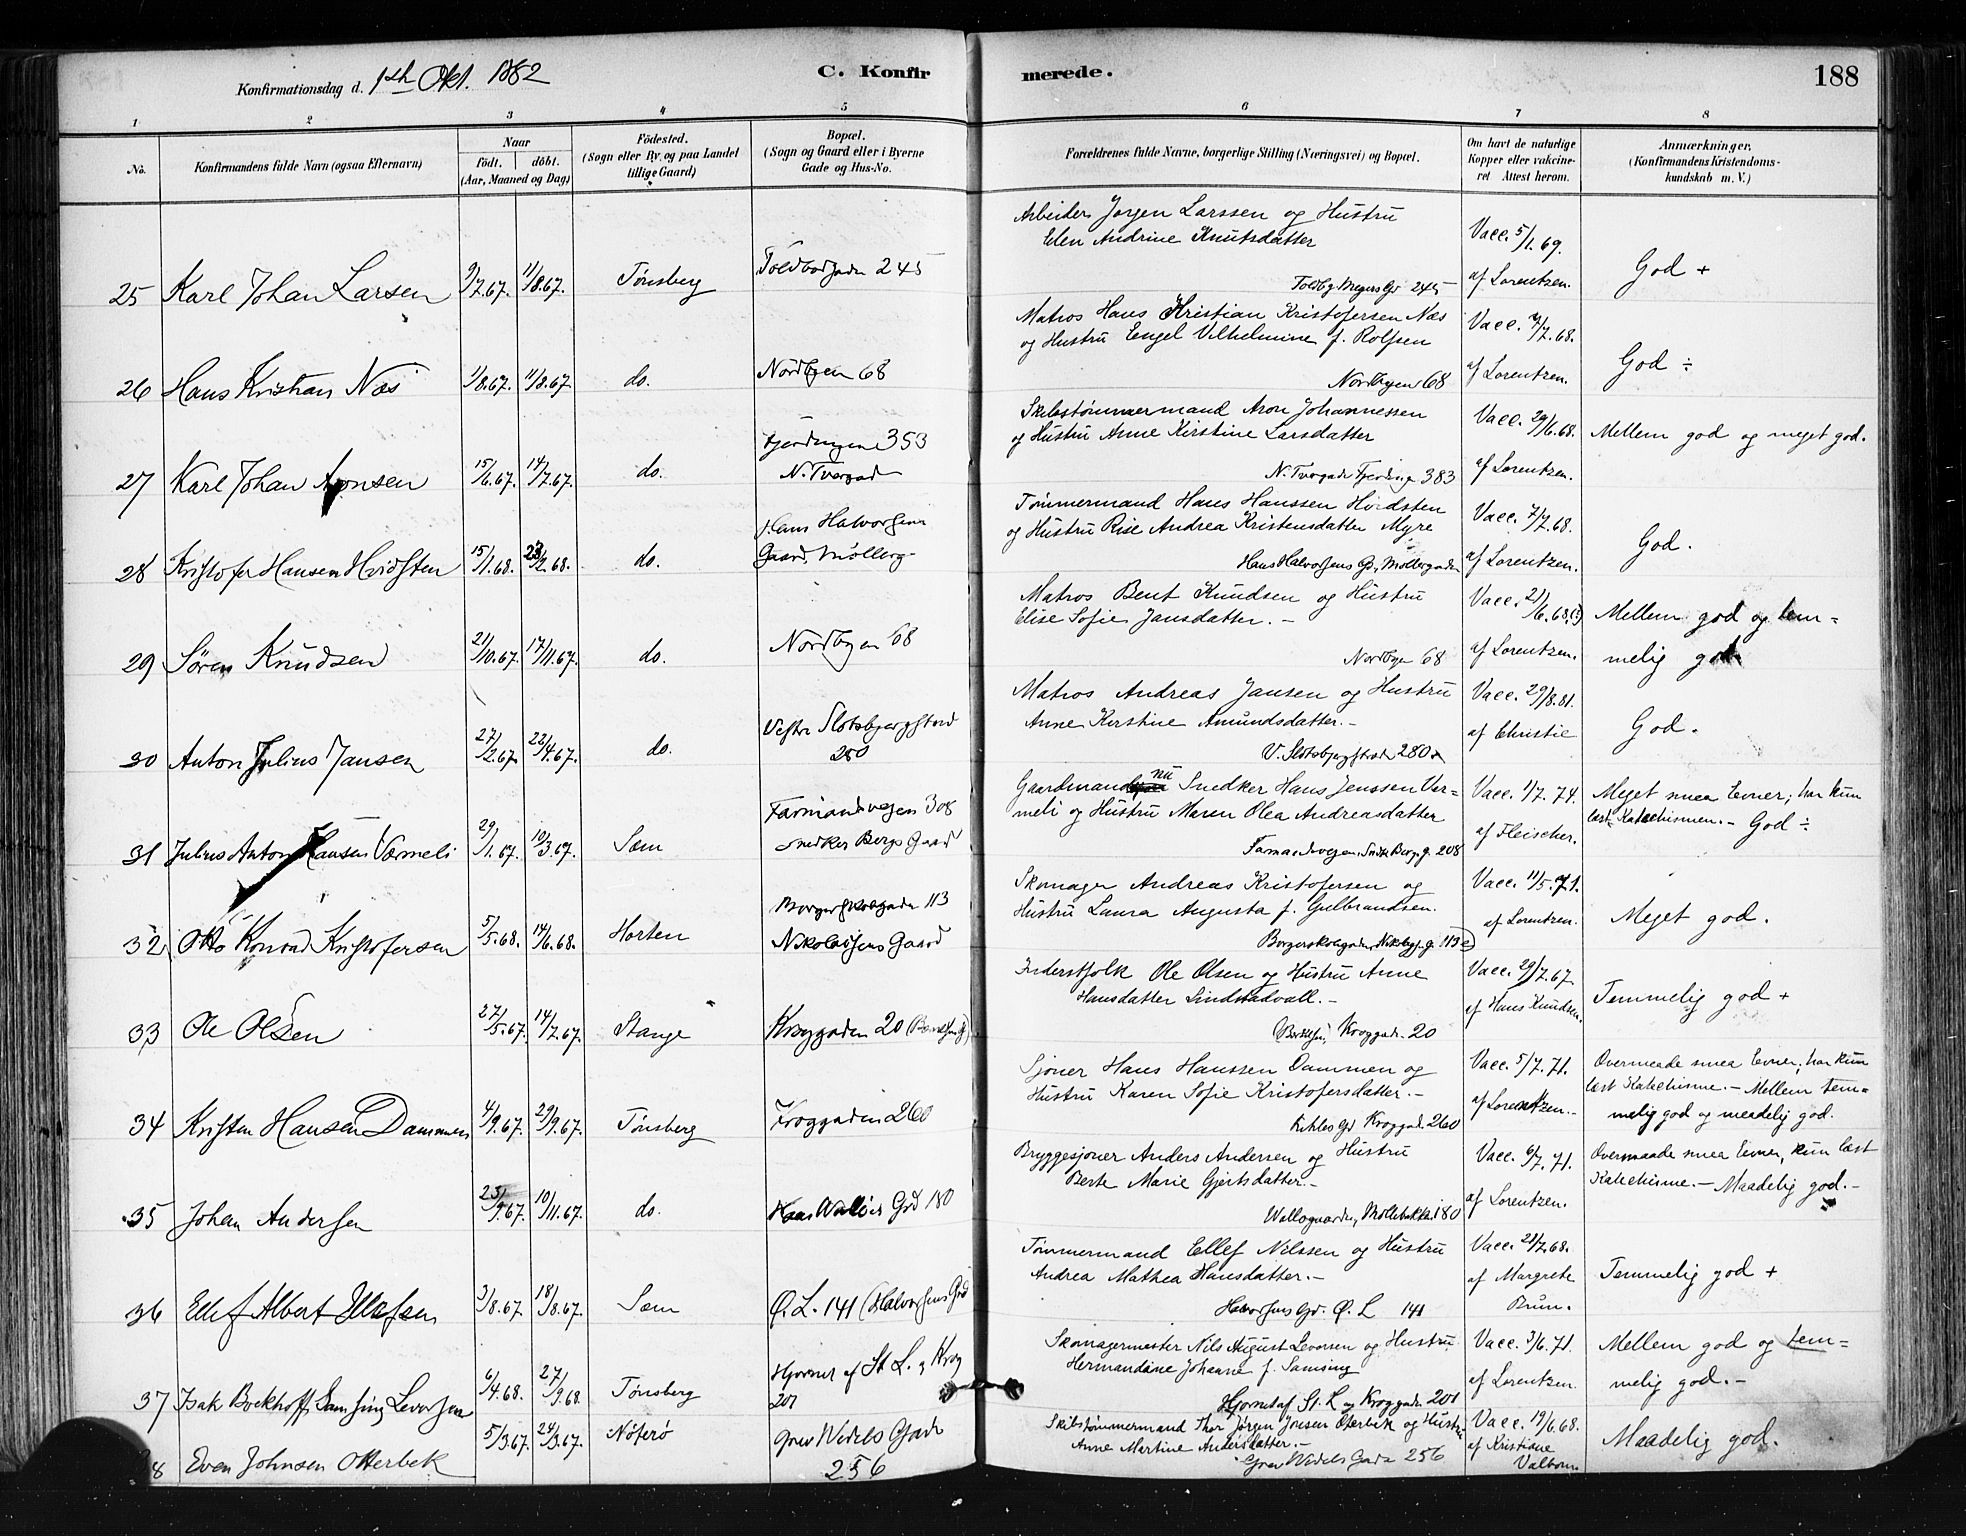 Konfirmationsdag d. 1ste Okt. 1882
C. Konfirmerede.
188
1 2 3 4 5 6 7 8
No.
Konfirmandens fulde Navn (ogsaa Efternavn)
Naar
födt. döbt.
(Aar, Maaned og Dag)
Födested.
(Sogn eller By og paa Landet
tillige Gaard)
Bopæl.
(Sogn og Gaard eller i Byerne
Gade og Hus-No.
Forældrenes fulde Navne, borgerlige Stilling (Næringsvei) og Bopæl.
Om havt de naturlige
Kopper eller vakcine-
ret Attest herom.
Anmærkninger.
(Konfirmandens Kristendoms-
kundskab m. V.)
25 Karl Johan Larsen 9/7.67. 11/8.67. Tønsberg Toldbodgaden 245
Arbeider Jørgen Larssen og Hustru
Elen Andrine Knutsdatter
245
Vacc. 5/1.69.
af Lorentzen.
God +
26 Hans Kristian Næs 1/8.67. 11/8.67. do. Nordbyen 68
Matros Hans Kristian Kristofersen Næs
og Hustru Engel Vilhelmine f. Rolfsen
Nordbyen 68
Vacc. 7/7.68.
af Lorentzen.
God ÷
27 Karl Johan Aronsen 15/6.67. 14/7.67. do. Fjerdingen 353
N. Tvergad
Skibstømmermand Aron Johannessen
og Hustru Anne Kirstine Larsdatter
N. Tvergade Fjerdingen 383
Vacc. 29/6.68.
af Lorentzen.
Mellem god og meget god.
28 Kristofer Hansen Hvidsten 15/1.68. 23/2.68. do. Hans Halvorsens
Gaard, Møllerg.
Tømmermand Hans Hanssen Hvidsten
og Hustru Rise Andrea Kristensdatter Myre
Hans Halvorsens Gd., Møllergaden
Vacc. 7/7.68.
af Lorentzen.
God.
29 Sören Knudsen 21/10.67. 17/11.67. do. Nordbyen 68
Matros Bent Knudsen og Hustru
Elise Sofie Jansdatter.-
Nordbyen 68
Vacc. 21/6.68.(?)
af Lorentzen.
Mellem god og tem=
melig god.
30 Anton Julius Jansen 27/2.67. 22/4.67. do. Vestre Slotsbjergstræd
280
Matros Andreas Jansen og Hustru
Anne Kirstine Amundsdatter.-
V. Slotsbjergstræd 280
Vacc. 29/8.81.
af Christie
God.
31 Julius Anton Hansen Værmeli 29/1.67. 10/3.67. Sæm Farmandsvejen 308
Snedker Bergs Gaard
Gaardmand nu Snedker Hans Jenssen Vær=
meli og Hustru Maren Olea Andreasdatter
Farmandsvejen, Snedk. Bergs g. 208
Vacc. 1/7.74.
af Fleischer.
Meget smaa Evner; har kun
læst Katechismen.- God ÷
32 Otto Konrad Kristofersen 5/5.68. 14/6.68. Horten Borgerskolegaden 113
Nikolaisens Gaard
Skomager Andreas Kristofersen og
Hustru Laura Augusta f. Gulbrandsen.
Borgerskolegaden, 113
Vacc. 11/5.71.
af Lorentzen.
Meget god.
33 Ole Olsen 27/5.67. 14/7.67. Stange Kroggaden 20
Inderstfolk Ole Olsen og Hustru Anne
Hansdatter Lindstadvall.-
Kroggad. 20
Vacc. 29/7.67.
af Hans Knudsen.
Temmelig god +
34 Kristen Hansen Dammen 4/9.67. 29/9.67. Tønsberg Kroggaden 260
Sjøner Hans Hanssen Dammen og
Hustru Karen Sofie Kristofersdatter.-
Kihles Gd Kroggad. 260
Vacc. 5/7.71.
af Lorentzen.-
Overmaade smaa Evner, har kun
læst Katechisme.- Mellem tem=
melig god og maadelig god.
35 Johan Andersen 25/9.67. 10/11.67. do. Walløes Grd 180
Bryggesjoner Anders Andersen og Hustru
Berte Marie Gjertsdatter.-
Walløgaarden, Møllebakken 180
Vacc. 6/7.71.
af Lorentzen.
Overmaade smaa Evner, kun læst
Katechisme.- Maadelig god.-
36 Ellef Albert Ellefsen 3/8.67. 18/8.67. Sæm Ø. L. 141 (Halvorsens Grd
Tømmermand Ellef Nilssen og Hustru
Andrea Mathea Hansdatter.-
Halvorsens Gd. Ø. L 141
Vacc. 21/7.68.
af Margrete
Brun.
Temmelig god +
37 Isak Bockhoff Samsing Levorsen 6/4.68. 27/9.68. Tønsberg Hjørnet af St. L. & Krog
201
Skomagermester Nils August Levorsen og Hustru
Hermandine Johanne f. Samsing
Hjørnet af St. L og Kroggad. 201
Vacc. 3/6.71.
af Lorentzen.
Mellem god og tem=
melig god.-
38 Even Johnsen Otterbek 5/3.67. 24/3.67. Nöterö Grev Wedels Gade
256
Skibstømmermand Thor Jørgen Johnsen Oterbek og Hustru
Anne Martine Andersdatter.-
Grev Wedels Gade 256
Vacc. 19/6.68.
af Kristiane
Valbom.
Maadelig god.